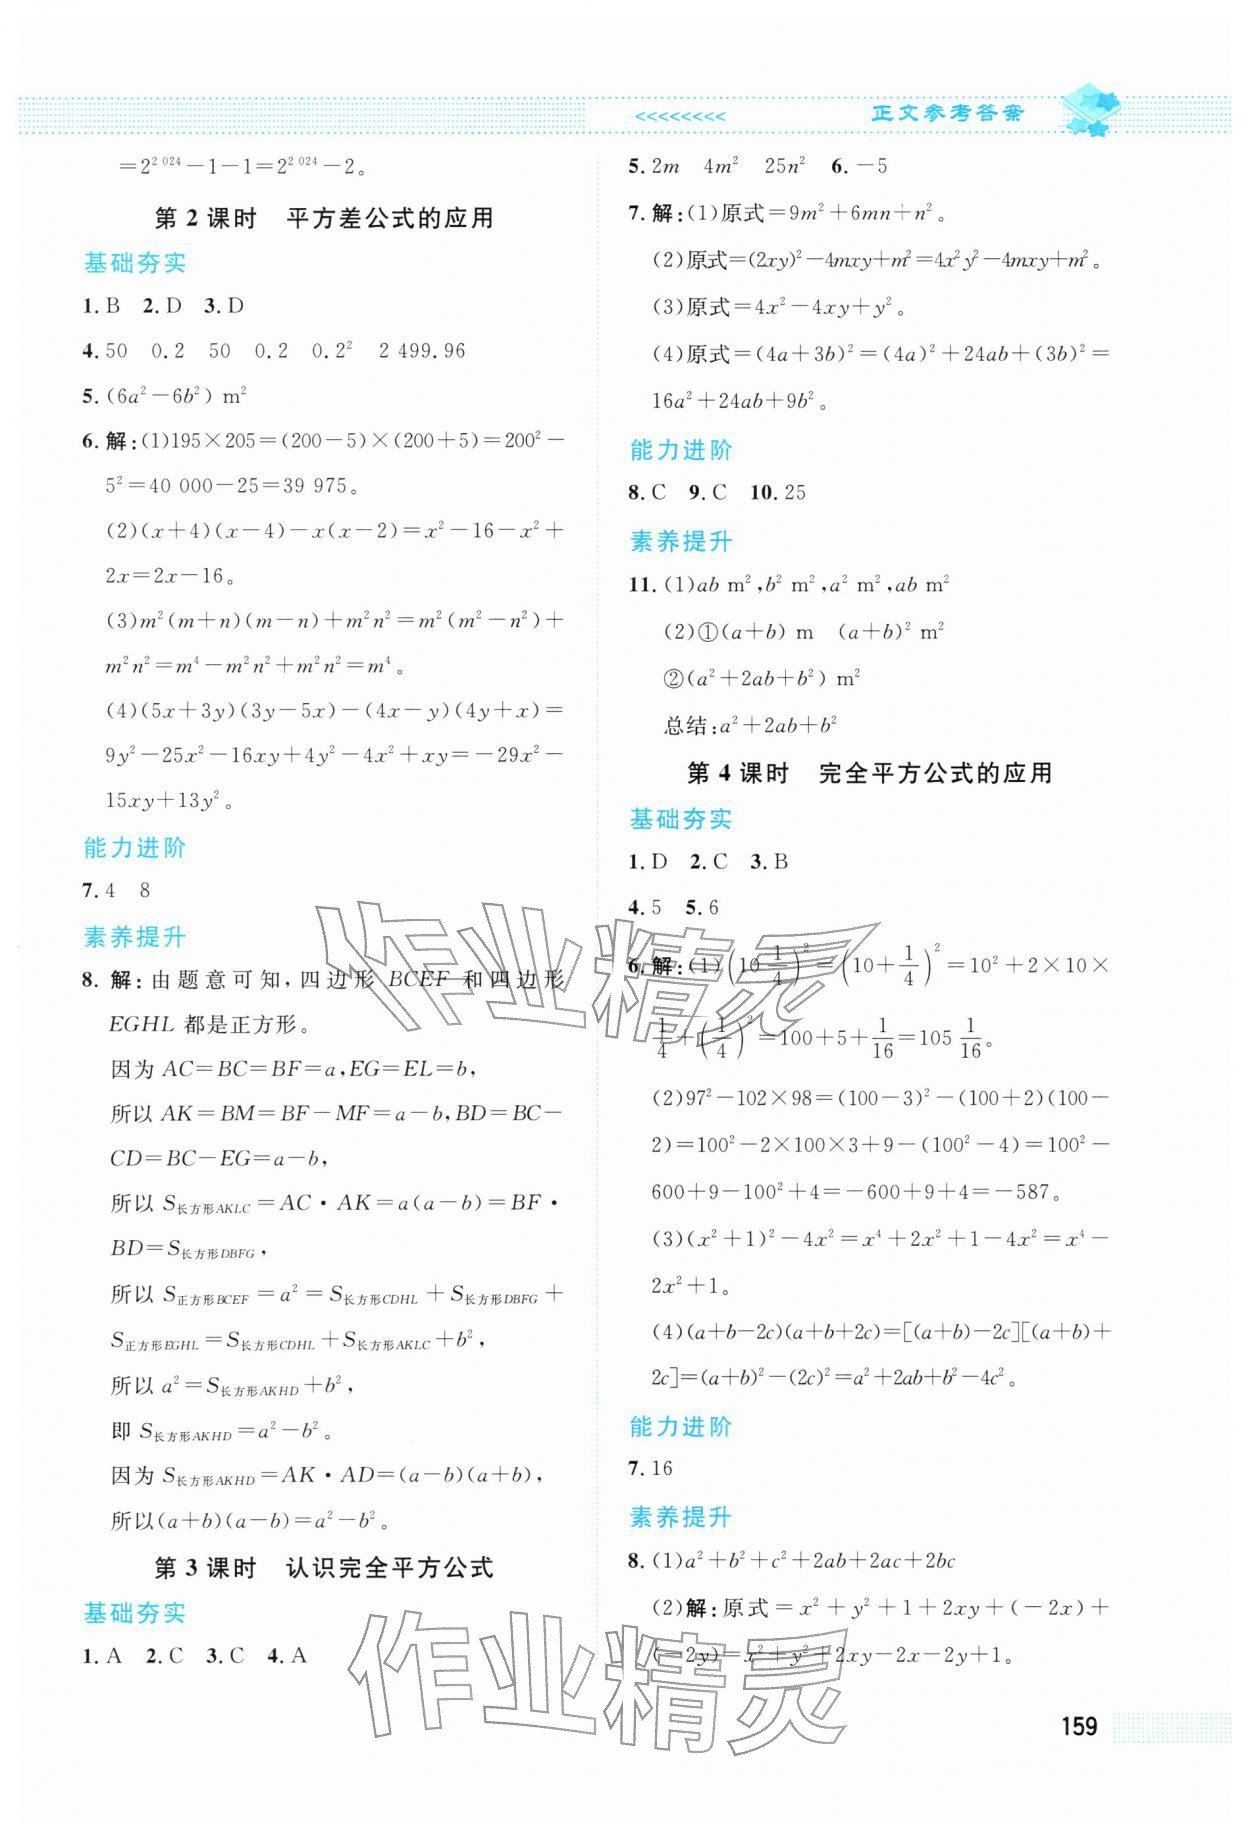 <<<<<<<< 正文参考答案
=2^{2 024}-1-1=2^{2 024}-2。
第 2 课时 平方差公式的应用
基础夯实
1.B 2.D 3.D
4.50 0.2 50 0.2 0.2² 2 499.96
5.(6a²-6b²) m²
6.解:(1)195×205=(200-5)×(200+5)=200²-
5²=40 000-25=39 975。
(2)(x+4)(x-4)-x(x-2)=x²-16-x²+
2x=2x-16。
(3)m²(m+n)(m-n)+m²n²=m²(m²-n²)+
m²n²=m⁴-m²n²+m²n²=m⁴。
(4)(5x+3y)(3y-5x)-(4x-y)(4y+x)=
9y²-25x²-16xy+4y²-4x²+xy=-29x²-
15xy+13y²。
能力进阶
7.4 8
素养提升
8.解:由题意可知,四边形 BCEF 和四边形
EGHL 都是正方形。
因为 AC=BC=BF=a,EG=EL=b,
所以 AK=BM=BF-MF=a-b,BD=BC-
CD=BC-EG=a-b,
所以 S长方形AKLC=AC·AK=a(a-b)=BF·
BD=S长方形DBFG,
所以 S正方形BCEF=a²=S长方形CDHL+S长方形DBFG+
S正方形EGHL=S长方形CDHL+S长方形AKLC+b²,
所以 a²=S长方形AKHD+b²,
即 S长方形AKHD=a²-b²。
因为 S长方形AKHD=AK·AD=(a-b)(a+b),
所以(a+b)(a-b)=a²-b²。
第 3 课时 认识完全平方公式
基础夯实
1.A 2.C 3.C 4.A
5.2m 4m² 25n² 6.-5
7.解:(1)原式=9m²+6mn+n²。
(2)原式=(2xy)²-4mxy+m²=4x²y²-4mxy+m²。
(3)原式=4x²-4xy+y²。
(4)原式=(4a+3b)²=(4a)²+24ab+(3b)²=
16a²+24ab+9b²。
能力进阶
8.C 9.C 10.25
素养提升
11.(1)ab m²,b² m²,a² m²,ab m²
(2)①(a+b) m (a+b)² m²
②(a²+2ab+b²) m²
总结:a²+2ab+b²
第 4 课时 完全平方公式的应用
基础夯实
1.D 2.C 3.B
4.5 5.6
6.解:(1)(10 1/4)²=(10+1/4)²=10²+2×10×
1/4+(1/4)²=100+5+1/16=105 1/16。
(2)97²-102×98=(100-3)²-(100+2)(100-
2)=100²-2×100×3+9-(100²-4)=100²-
600+9-100²+4=-600+9+4=-587。
(3)(x²+1)²-4x²=x⁴+2x²+1-4x²=x⁴-
2x²+1。
(4)(a+b-2c)(a+b+2c)=[(a+b)-2c][(a+b)+
2c]=(a+b)²-(2c)²=a²+2ab+b²-4c²。
能力进阶
7.16
素养提升
8.(1)a²+b²+c²+2ab+2ac+2bc
(2)解:原式=x²+y²+1+2xy+(-2x)+
(-2y)=x²+y²+2xy-2x-2y+1。
作业精灵
作业精灵
159